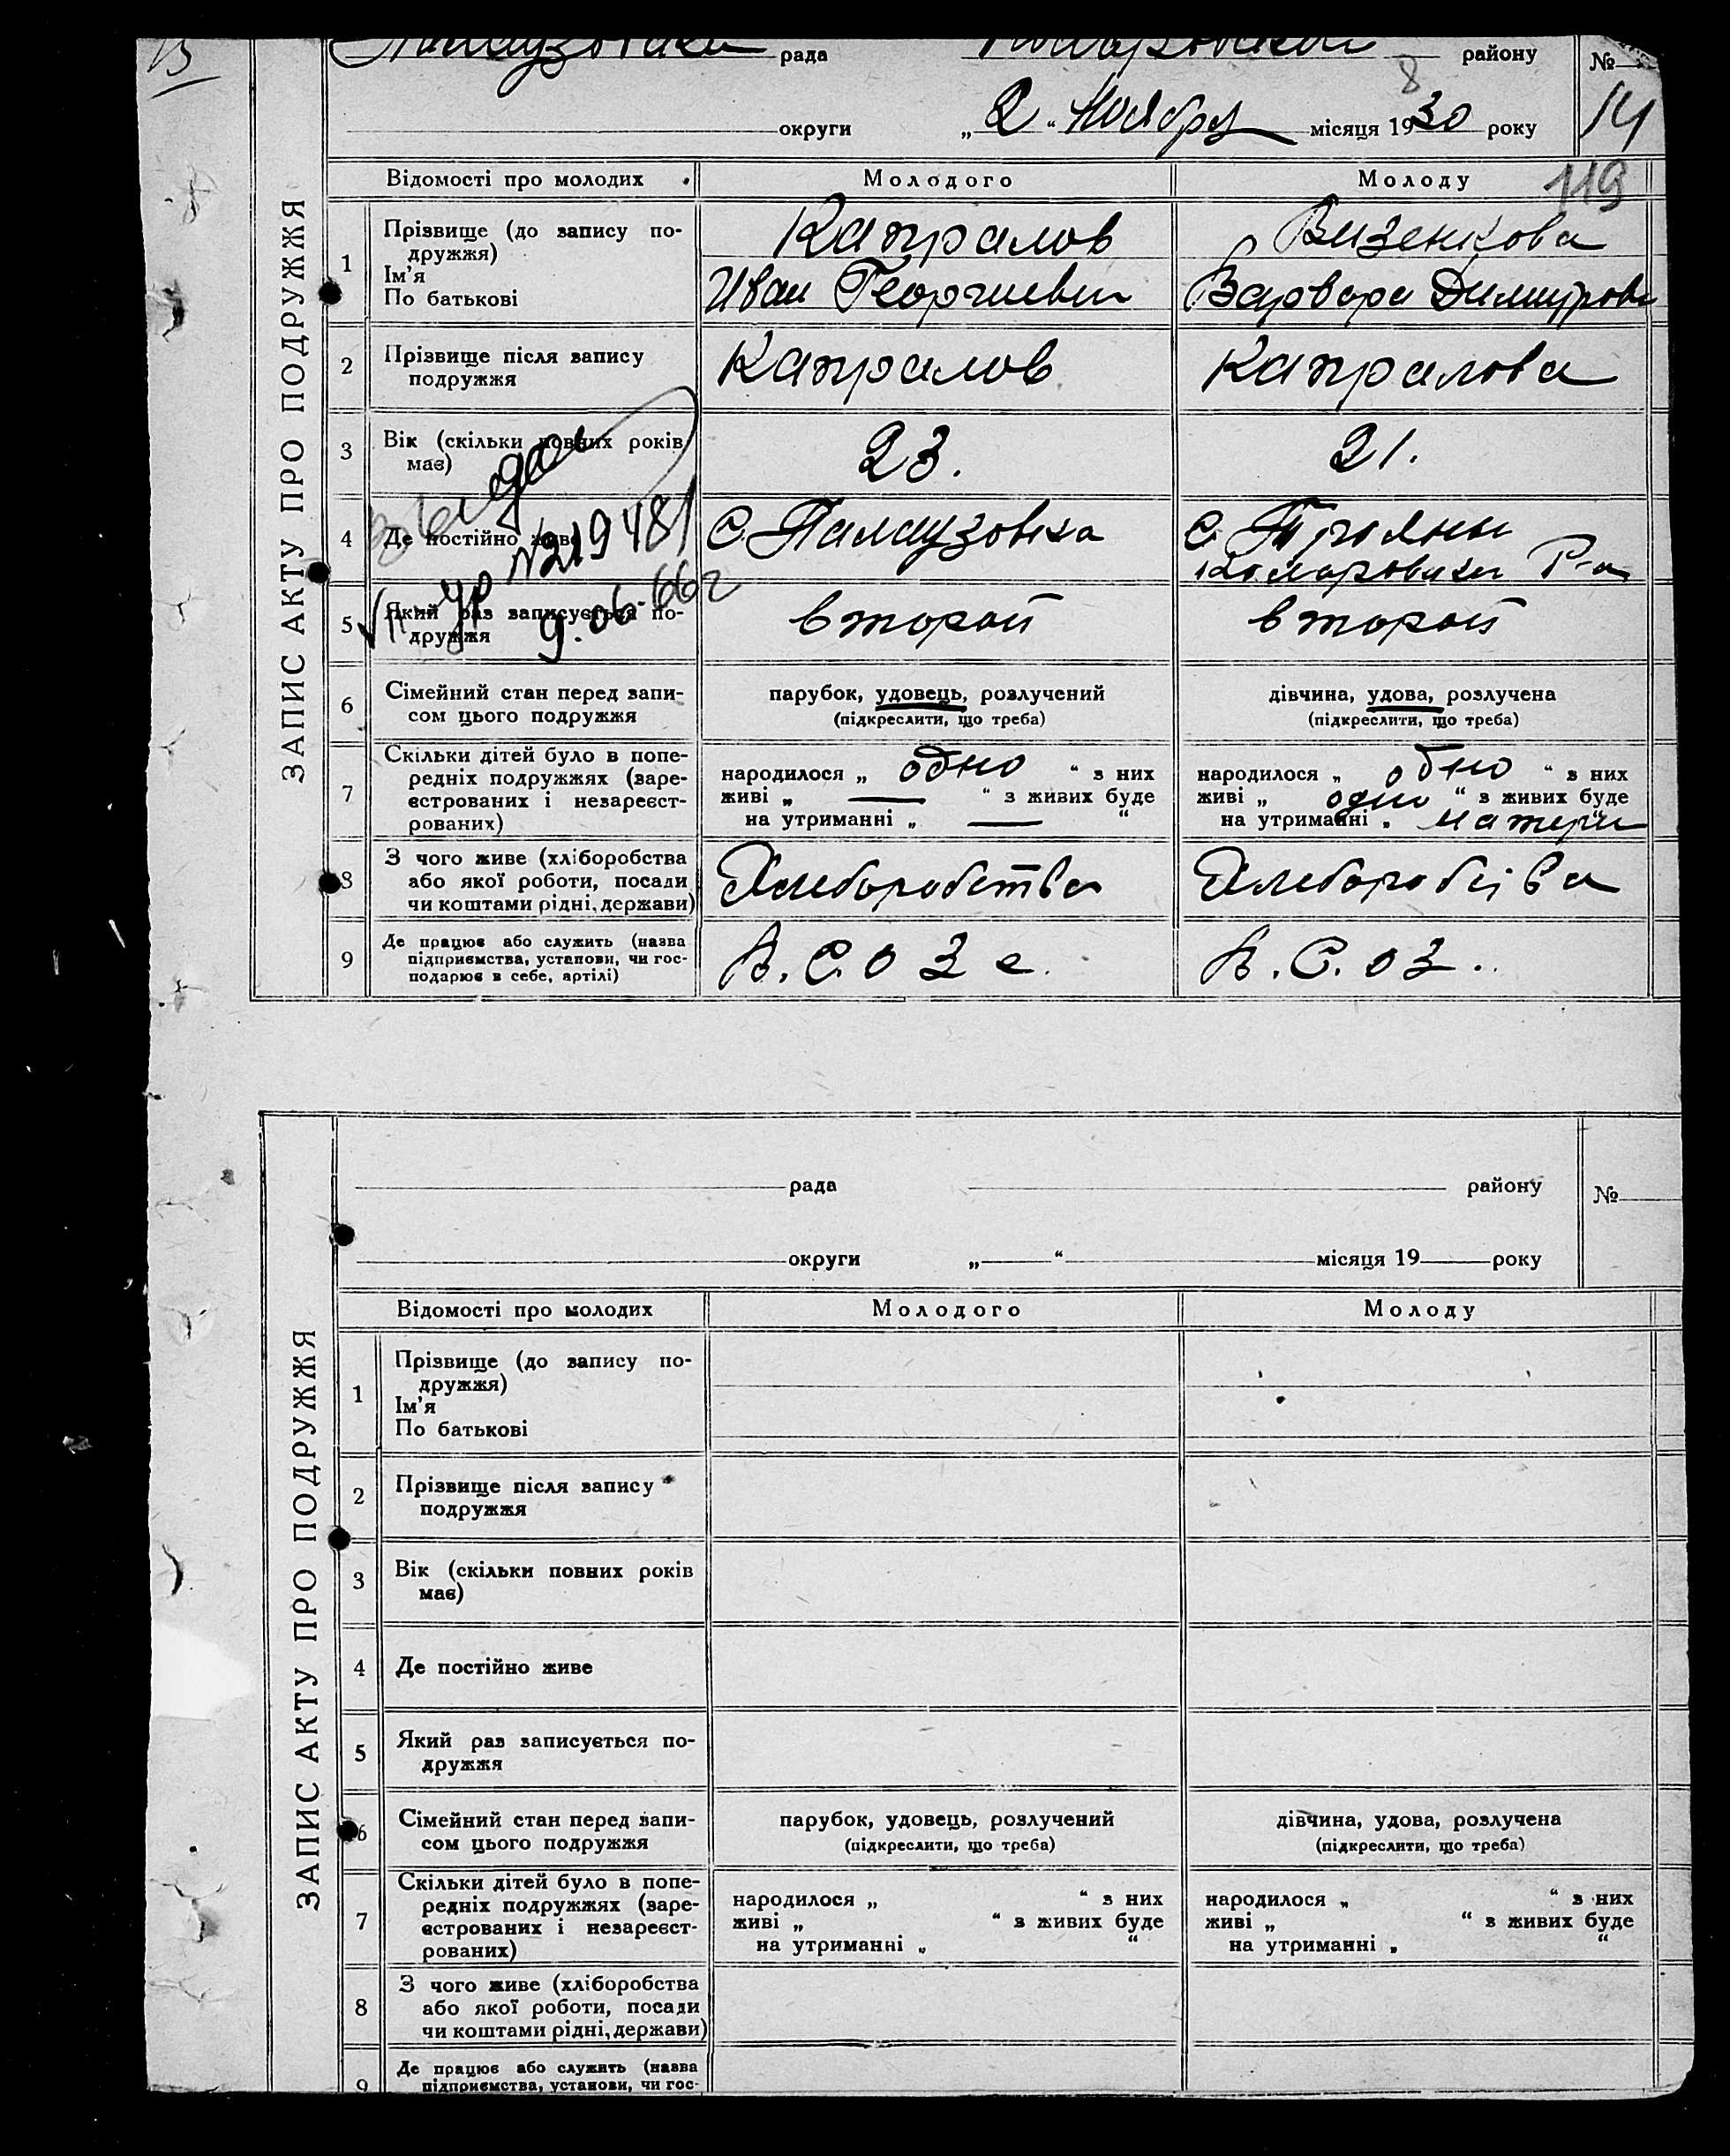 рада района району №
округи „ 2 “ Ноября місяця 1930 року 14
119
ЗАПИС АКТУ ПРО ПОДРУЖЖЯ
Відомості про молодих Молодого Молоду
1 Прізвище (до запису по-
дружжя)
Ім’я
По батькові
Капралов
Иван Георгиевич
Визенкова
Варвара Димитровн
2 Прізвище після запису
подружжя
Капралов Капралова
3 Вік (скільки повних років
має)
23. 21.
4 Де постійно живе
С. Палаузовка
С. Трояны
Комаровски Р-а
5 Який раз записується по-
дружжя
второй второй
№219481
9.06 66г
6 Сімейний стан перед запи-
сом цього подружжя
парубок, удовець, розлучений
(підкреслити, що треба)
дівчина, удова, розлучена
(підкреслити, що треба)
7 Скільки дітей було в попе-
редніх подружжях (заре-
єстрованих і незареєст-
рованих)
народилося „ одно “ з них
живі „ — “ з живих буде
на утриманні „ — “
народилося „ одно “ з них
живі „ одно “ з живих буде
на утриманні „ матери “
8 З чого живе (хліборобства
або якої роботи, посади
чи коштами рідні, держави)
Хлеборобства Хлеборобства
9 Де працює або служить (назва
підприємства, установи, чи гос-
подарює в себе, артілі)
В. С. О З е. В. С. О З.
ЗАПИС АКТУ ПРО ПОДРУЖЖЯ
рада району №
округи „ “ місяця 19 року
Відомості про молодих Молодого Молоду
1 Прізвище (до запису по-
дружжя)
Ім’я
По батькові
2 Прізвище після запису
подружжя
3 Вік (скільки повних років
має)
4 Де постійно живе
5 Який раз записується по-
дружжя
6 Сімейний стан перед запи-
сом цього подружжя
парубок, удовець, розлучений
(підкреслити, що треба)
дівчина, удова, розлучена
(підкреслити, що треба)
7 Скільки дітей було в попе-
редніх подружжях (заре-
єстрованих і незареєст-
рованих)
народилося „ “ з них
живі „ “ з живих буде
на утриманні „ “
народилося „ “ з них
живі „ “ з живих буде
на утриманні „ “
8 З чого живе (хліборобства
або якої роботи, посади
чи коштами рідні, держави)
9 Де працює або служить (назва
підприємства, установи, чи гос-